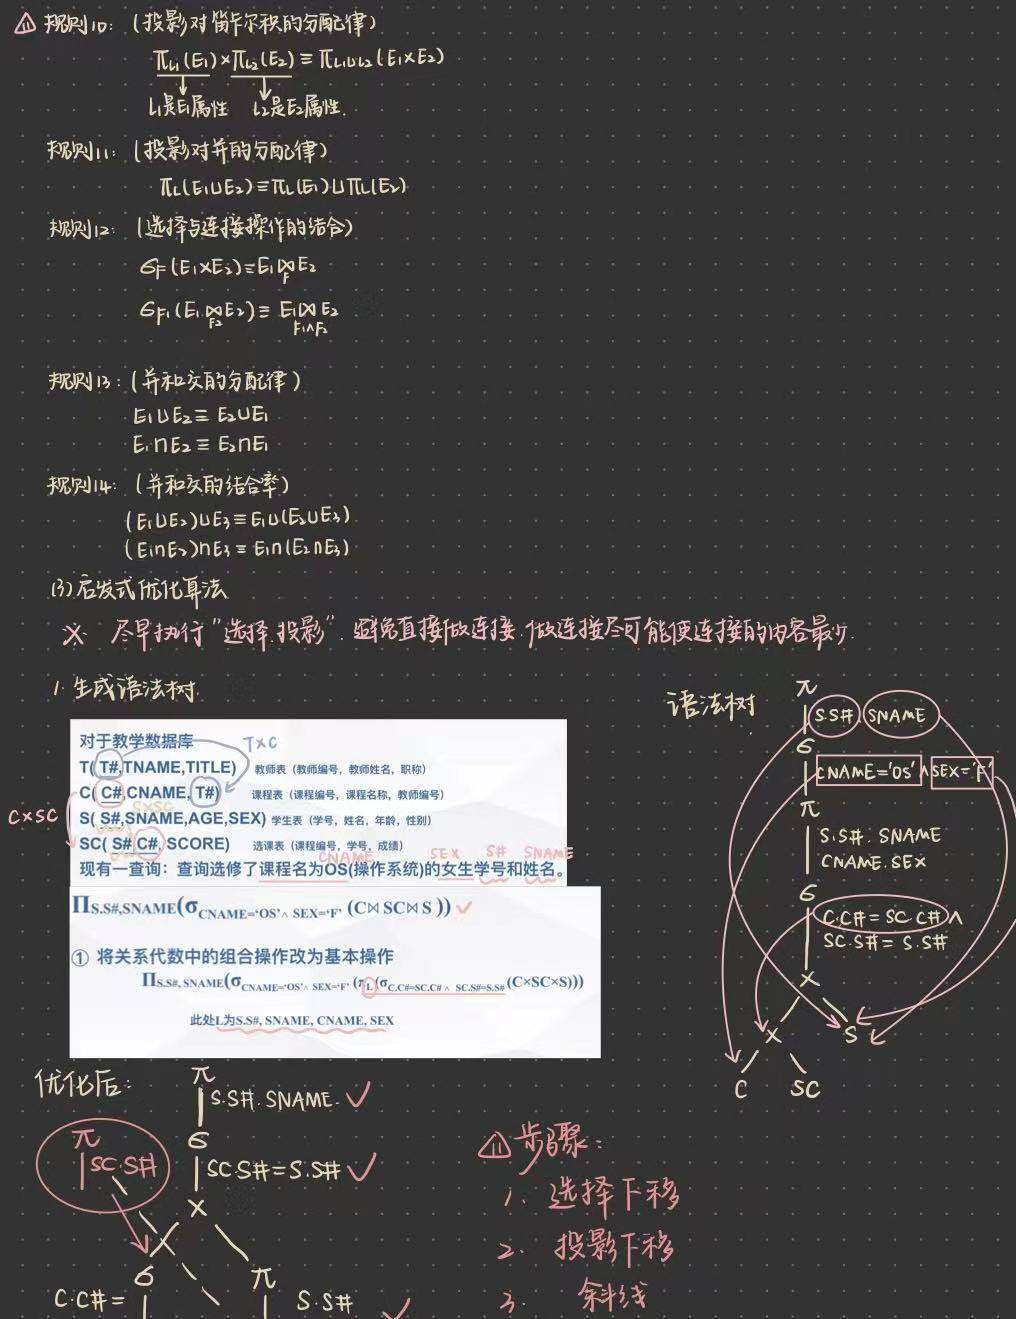 规则10：（投影对笛卡尔积的分配律）
πL1(E1)×πL2(E2)≡πL1∪L2(E1×E2)
L1是E1属性 L2是E2属性.
规则11：（投影对并的分配律）
πL(E1∪E2)≡πL(E1)∪πL(E2)
规则12：（选择与连接操作的结合）
σF(E1×E2)≡E1⋈F E2
σF1(E1⋈F2 E2)≡E1⋈F1∧F2 E2
规则13：（并和交的分配律）
E1∪E2≡E2∪E1
E1∩E2≡E2∩E1
规则14：（并和交的结合率）
(E1∪E2)∪E3≡E1∪(E2∪E3)
(E1∩E2)∩E3≡E1∩(E2∩E3)
(3)启发式优化算法
※ 尽早执行"选择.投影".避免直接做连接.做连接尽可能使连接的内容最少.
1.生成语法树
对于教学数据库 T×C
T( T#,TNAME,TITLE) 教师表（教师编号，教师姓名，职称）
C( C#,CNAME, T#) 课程表（课程编号，课程名称，教师编号）
C×SC
S×SC
S( S#,SNAME,AGE,SEX) 学生表（学号，姓名，年龄，性别）
SC( S# C#, SCORE) 选课表（课程编号，学号，成绩）
CNAME SEX S# SNAME
现有一查询：查询选修了课程名为OS(操作系统)的女生学号和姓名。
ΠS.S#,SNAME(σCNAME='OS'∧ SEX='F' (C⋈ SC⋈ S ))
① 将关系代数中的组合操作改为基本操作
ΠS.S#, SNAME(σCNAME='OS'∧ SEX='F' (πL(σC.C#=SC.C# ∧ SC.S#=S.S# (C×SC×S)))
此处L为S.S#, SNAME, CNAME, SEX
语法树
π
S.S#. SNAME
σ
CNAME='OS' ∧ SEX='F'
π
S.S#. SNAME
CNAME.SEX
σ
C.C#=SC.C#∧
SC.S#=S.S#
×
× S
C SC
优化后：
π
S.S#.SNAME.
π
SC.S#
σ
SC.S#=S.S#
×
σ π
C.C#= S.S#
步骤：
1. 选择下移
2. 投影下移
3. 斜线